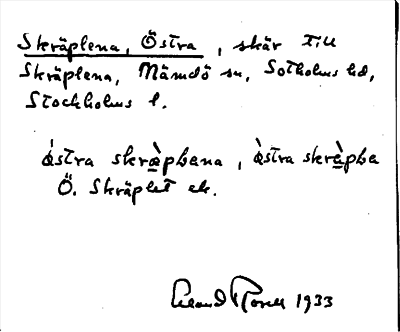 Skräplena, Östra, skär till
Skräplena, Nämdö sn, Sotholms hd,
Stockholms l.
ȧstra skræ̀pḷana, ȧ̀stra skræ̀pḷa
Ö. Skräplet ek.
Erland Rosell 1933